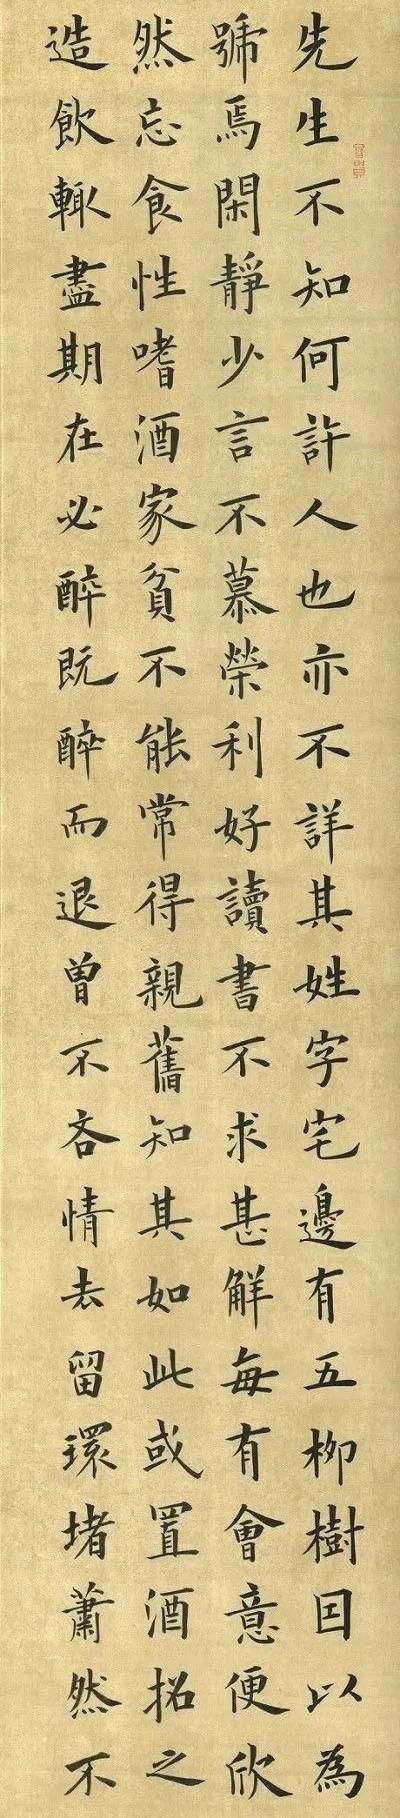 先生不知何許人也亦不詳其姓字宅邊有五柳樹因以為
號焉閑靜少言不慕榮利好讀書不求甚解每有會意便欣
然忘食性嗜酒家貧不能常得親舊知其如此或置酒招之
造飲輒盡期在必醉既醉而退曾不吝情去留環堵蕭然不